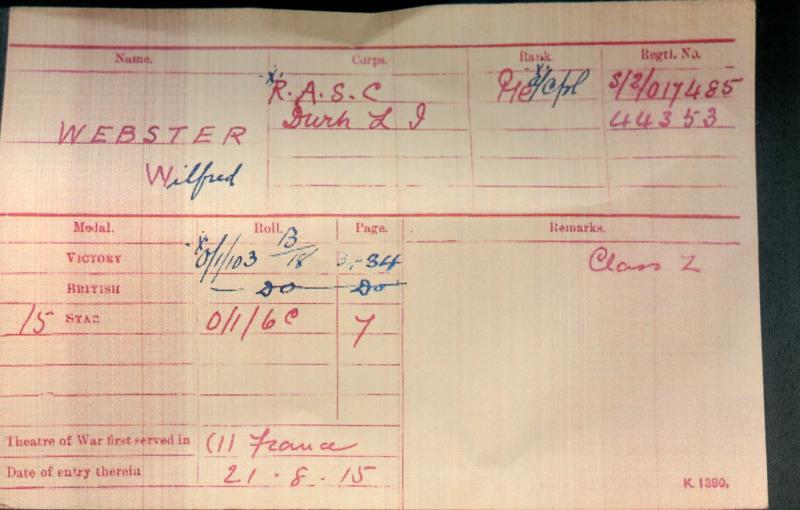 Name. Corps. Rank. Regtl. No.
x. R. A. S. C Pte A/Cpl S/2/017485
Durh L I 44353
WEBSTER
Wilfred
Medal. Roll. Page. Remarks.
VICTORY x O/1/103 B/18 34 Class Z
BRITISH — DO — DO
15 STAR O/1/6 C 7
Theatre of War first served in (1) France
Date of entry therein 21 . 8 . 15
K. 1380.